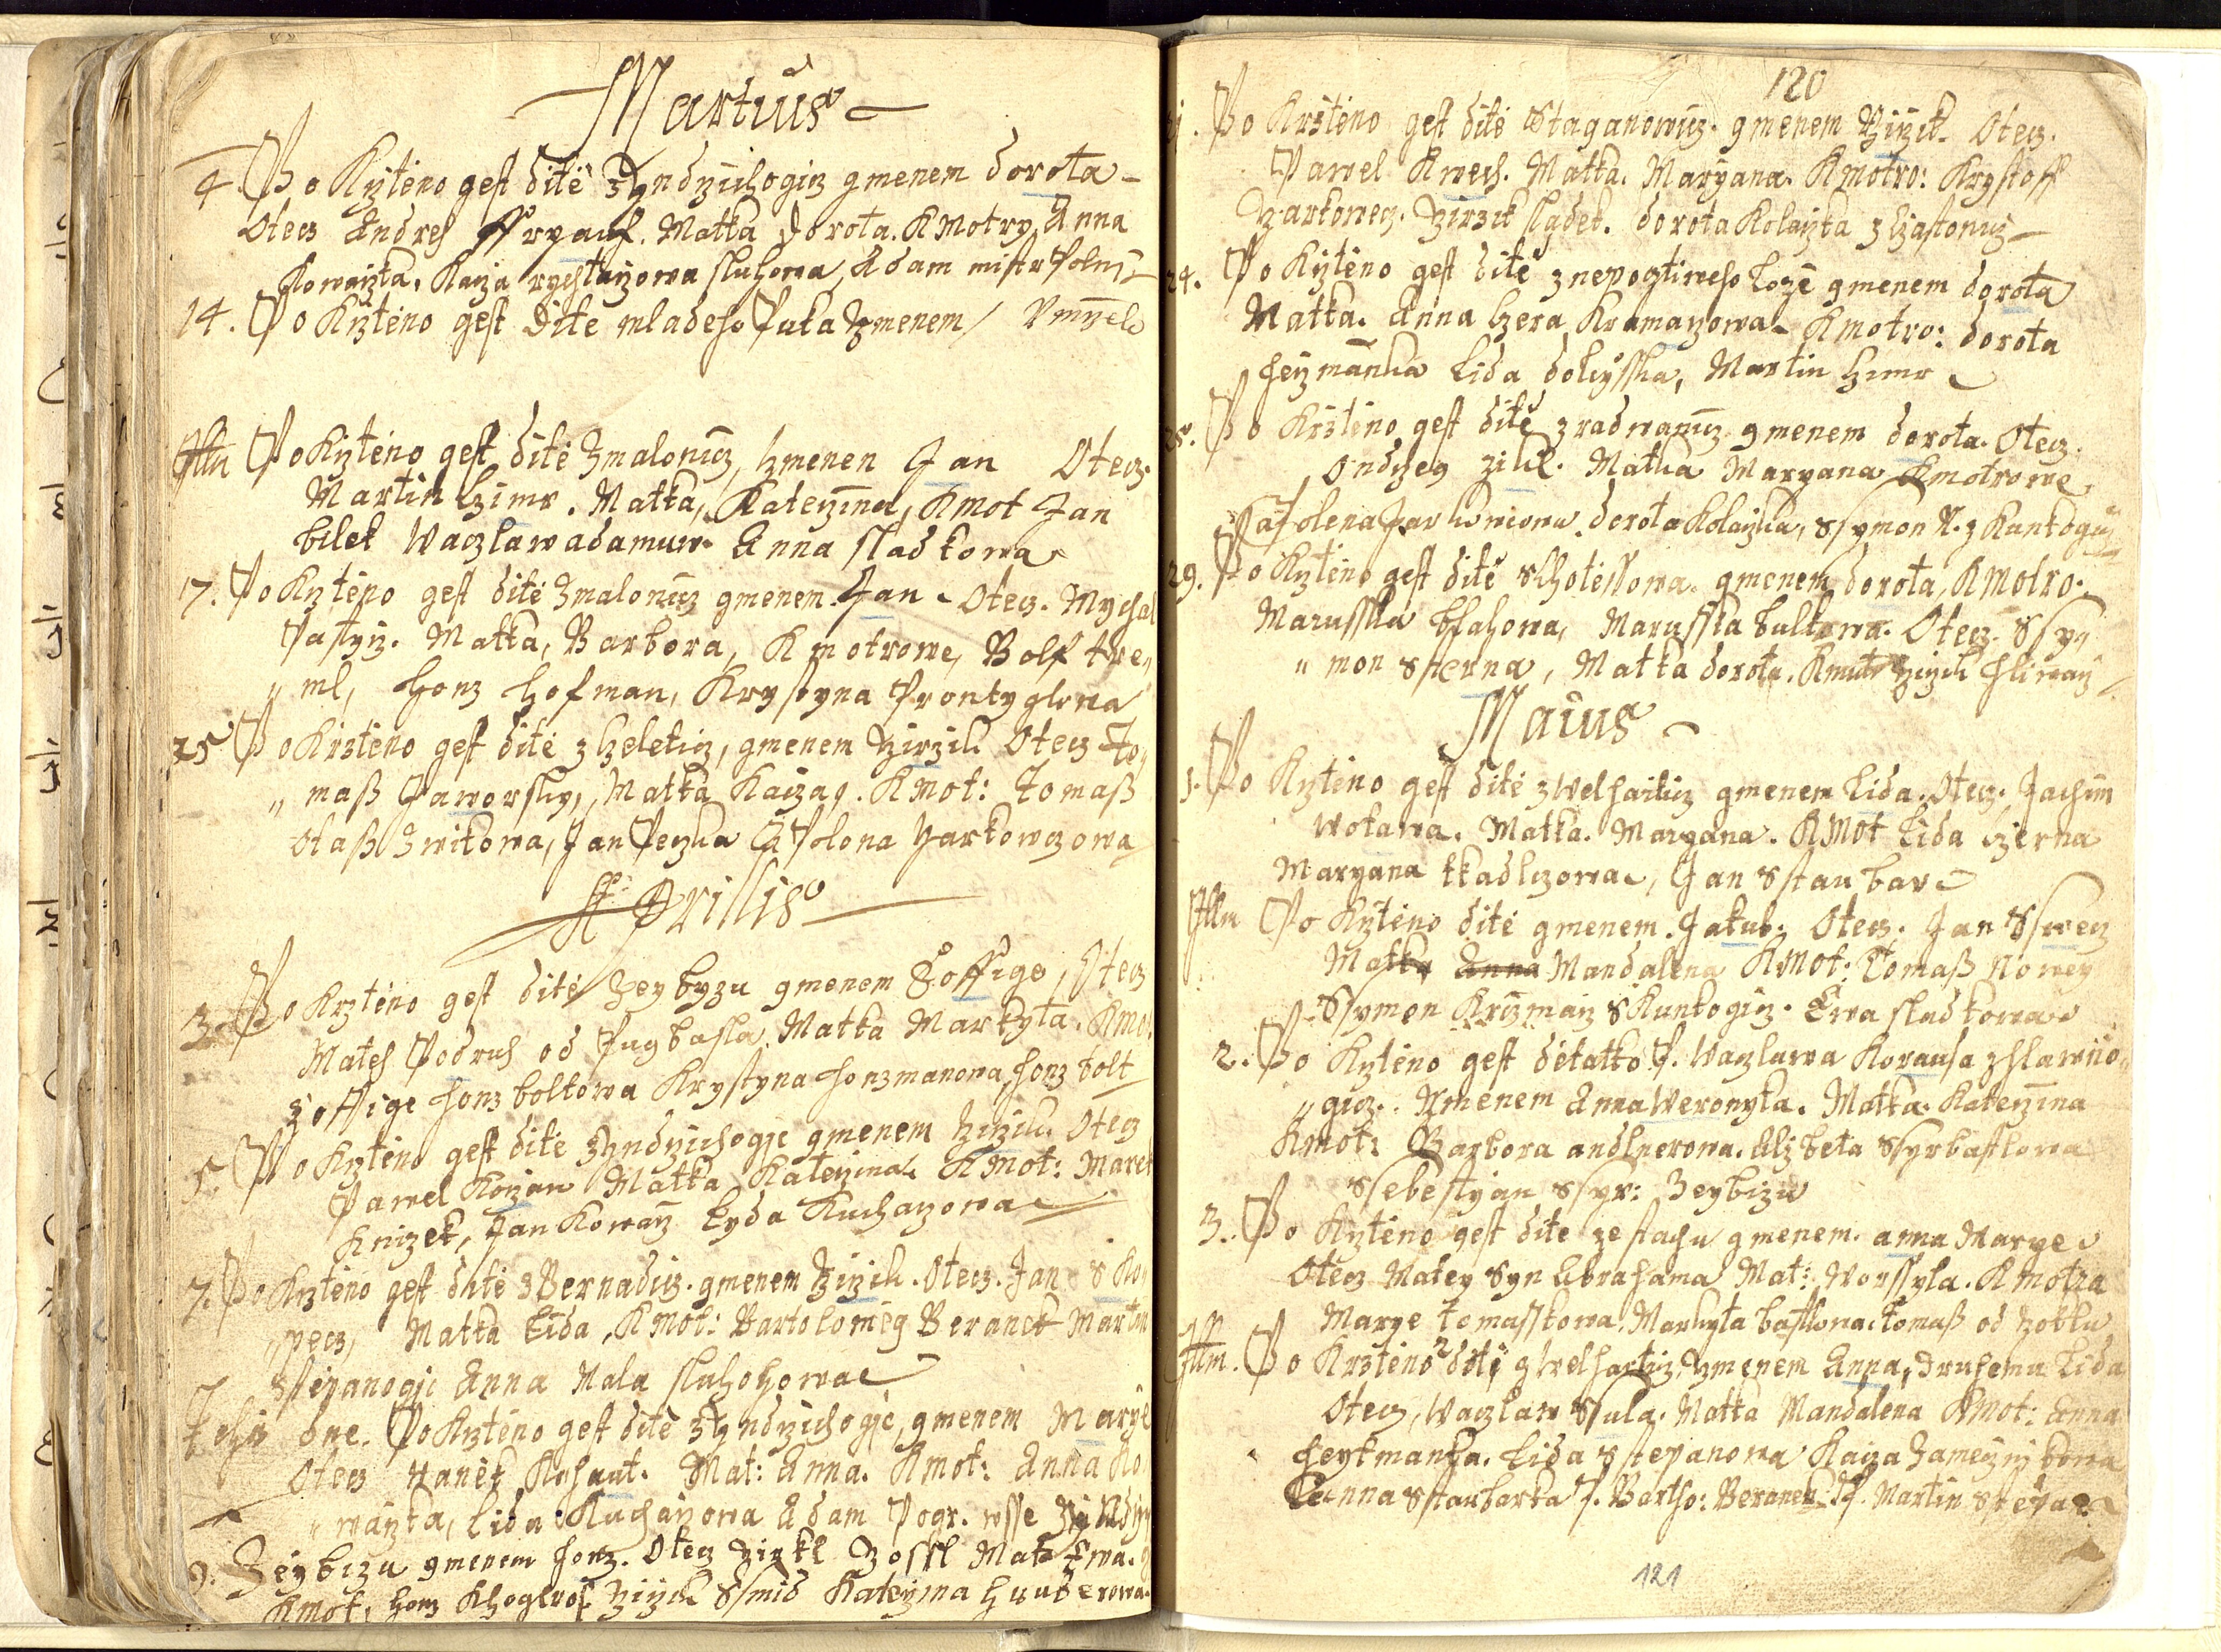 Martius
4. Po Krzteno gest dite z Gyndrzichogicz gmenem dorota
Otecz Andres ffryauf. Matka Dorota. KMotry Anna
Kowarzka, Kacza rychtarzowa sluhowa, Adam mistr Polni
14. Po Krzteno gest Dite mladeho Puka Gmenem / Vmrzelo
Ittm Po Krzteno gest dite Zmalonicz, Gmenen Jan Otecz.
Martin Czimr. Matka, Katerzina, KMot Jan
bilek Waczlaw adamuw. Anna sladkowa
17. Po Krzteno gest dite Zmalonicz gmenem Jan Otecz. Mychal
Pastyrz. Matka, Barbora, Kmotrowe, Wolf tre„
„ ml, Honz Hofman, Krystyna Prontyglowa
25 Po Krzteno gest dite z Czeleticz, gmenem Girzik Otecz To„
„ maß Jaworsky, Matka Kacza. KMot: Tomaß
Otaß Zwikowa, Jan Peczka Apolona Harkowczowa
Aprillis
3. Po Krzteno gest dite Zeybyzu gmenem Zoffige, Otecz
Mates Podruh od Pugbasla. Matka Markyta. KMot.
Zoffige honz boltowa Krystyna honzmanowa, honz bolt
5. Po Krzteno gest dite z Gyndrzichogic gmenem Girzik. Otecz
Pawel Korzan Matka Katerzina. KMot: Marek
Knizek, Jan Kowarz Lyda Kucharzowa
7. Po Krzteno gest dite z Bernadicz. gmenem Girzik. Otecz. Jan sko
„pecz, Matka Lida, KMot: Bartolomeg Beranek Martin
Sstepanogic Anna Mala sluhohowa
Tehoz dne. Po Krzteno gest dite z Gyndrzichogic, gmenem Marye
Otecz Vanek Kohaut. Mat: Anna. Kmot: Anna Ko
„warzka, Lida Kucharzowa Adam Pogr. wsse
9. Zeybizu gmenem honz. Otecz Girkl Zoffl Mat Ewa.
KMot, honz Girzik Ssmid Katerzina
120
Po Krzteno gest dite Staganowicz. gmenem Girzik. Otecz.
Pawel Kwech. Matka. Maryana. Kmotro: Krystoff
Harkowecz. Girzik sladek. dorota Kolarzka z Czastonicz
24. Po Krzteno gest dite z nepocztiweho Loze gmenem dorota
Matka. Anna Czera Kramarzowa. Kmotro: dorota
heymanka Lida dolegsska, Martin Czimr
28. Po Krzteno gest dite z radwanicz gmenem dorota. Otecz.
Ondrzeg zikl. Matka Maryana Kmotrowe.
Apolena dorota Kolarzka, Ssymon
29. Po Krzteno gest dite sChotessowa. gmenem dorota, KMotro.
Marusska blahowa, Marusska bulkowa. Otecz. Ssy„
„ mon Sterna, Matka dorota. Kmotr Girzik
Maius
1. Po Krzteno gest dite z Welharticz gmenem Lida. Otecz. Jachim
Wotawa. Matka. Maryana. KMot Lida Czerna
Maryana tkadlczowa, Jan Sstaubar
Ittm Po Krzteno dite gmenem. Jakub. Otecz. Jan Sswecz
Matka Anna Mandalena KMot: Tomaß Nowey
Ssymon Krizmarz sKunkogicz. Ewa sladkowa
2. Po Krzteno gest detatko P. Waczlawa Korausa z hlawnio„
„gicz. Gmenem Anna Weronyka. Matka. Katerzina
Kmot: Barbora andlnerowa. Alzbeta Ssyrbastowa
Ssebestyan Ssyr: Zeybizu
3. Po Krzteno gest dite ze stachu gmenem. anna Marye
Otecz Matey Syn Abrahama Mat: Worssyla. Kmotra
Marye tomasskowa, Markyta bastlowa. Tomaß od
Ittm. Po Krzteno 2 dite z Welharticz Gmenem Anna, druhemu Lida
Otecz, Waczlaw Ssula. Matka Mandalena KMot: Anna
heytmanka. Lida Stepanowa Kacza
Anna Sstaubarka P. Bartho: Beranek P. Martin Stepan
121